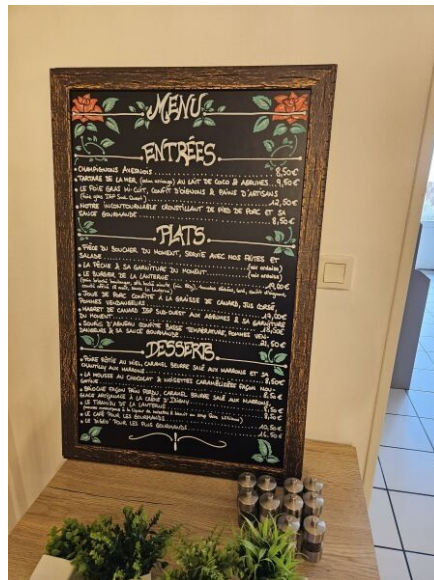 MENU
ENTRÉES
• CHAMPIGNONS 8,50€
• TARTARE DE LA MER, AU LAIT DE COCO & AGRUMES... 9,50€
• LE FOIE GRAS MI-CUIT, CONFIT D'OIGNONS & PAINS D'ARTISANS
(foie gras IGP Sud-Ouest) 12,50€
• NOTRE INCONTOURNABLE CROUSTILLANT DE PIED DE PORC ET SA
SAUCE GOURMANDE 8,50€
PLATS
• PIÈCE DU BOUCHER DU MOMENT, SERVIE AVEC NOS FRITES ET
SALADE (voir ardoise)
• LA PÊCHE & SA GARNITURE DU MOMENT (voir ardoise)
• LE BURGER DE LA LANTERNE 19,00€
• JOUE DE PORC CONFITE À LA GRAISSE DE CANARD, JUS CORSÉ
POMMES 19,00€
• MAGRET DE CANARD IGP SUD-OUEST AUX AGRUMES & SA GARNITURE
DU MOMENT 18,50€
• SOURIS D'AGNEAU CONFITE BASSE TEMPÉRATURE, POMMES
& SA SAUCE GOURMANDE 21,50€
DESSERTS
• POIRE RÔTIE AU MIEL, CARAMEL BEURRE SALÉ AUX MARRONS ET SA
CHANTILLY AUX MARRONS 8,50€
• LA MOUSSE AU CHOCOLAT & NOISETTES CARAMÉLISÉES FAÇON
8,50€
• BRIOCHE FAÇON PAIN PERDU, CARAMEL BEURRE SALÉ AUX MARRONS,
GLACE ARTISANALE À LA CRÈME D'ISIGNY 8,50€
• LE TIRAMISU DE LA LANTERNE 8,50€
• LE CAFÉ POUR LES GOURMANDS 10,50€
• LE POUR LES PLUS GOURMANDS 16,50€